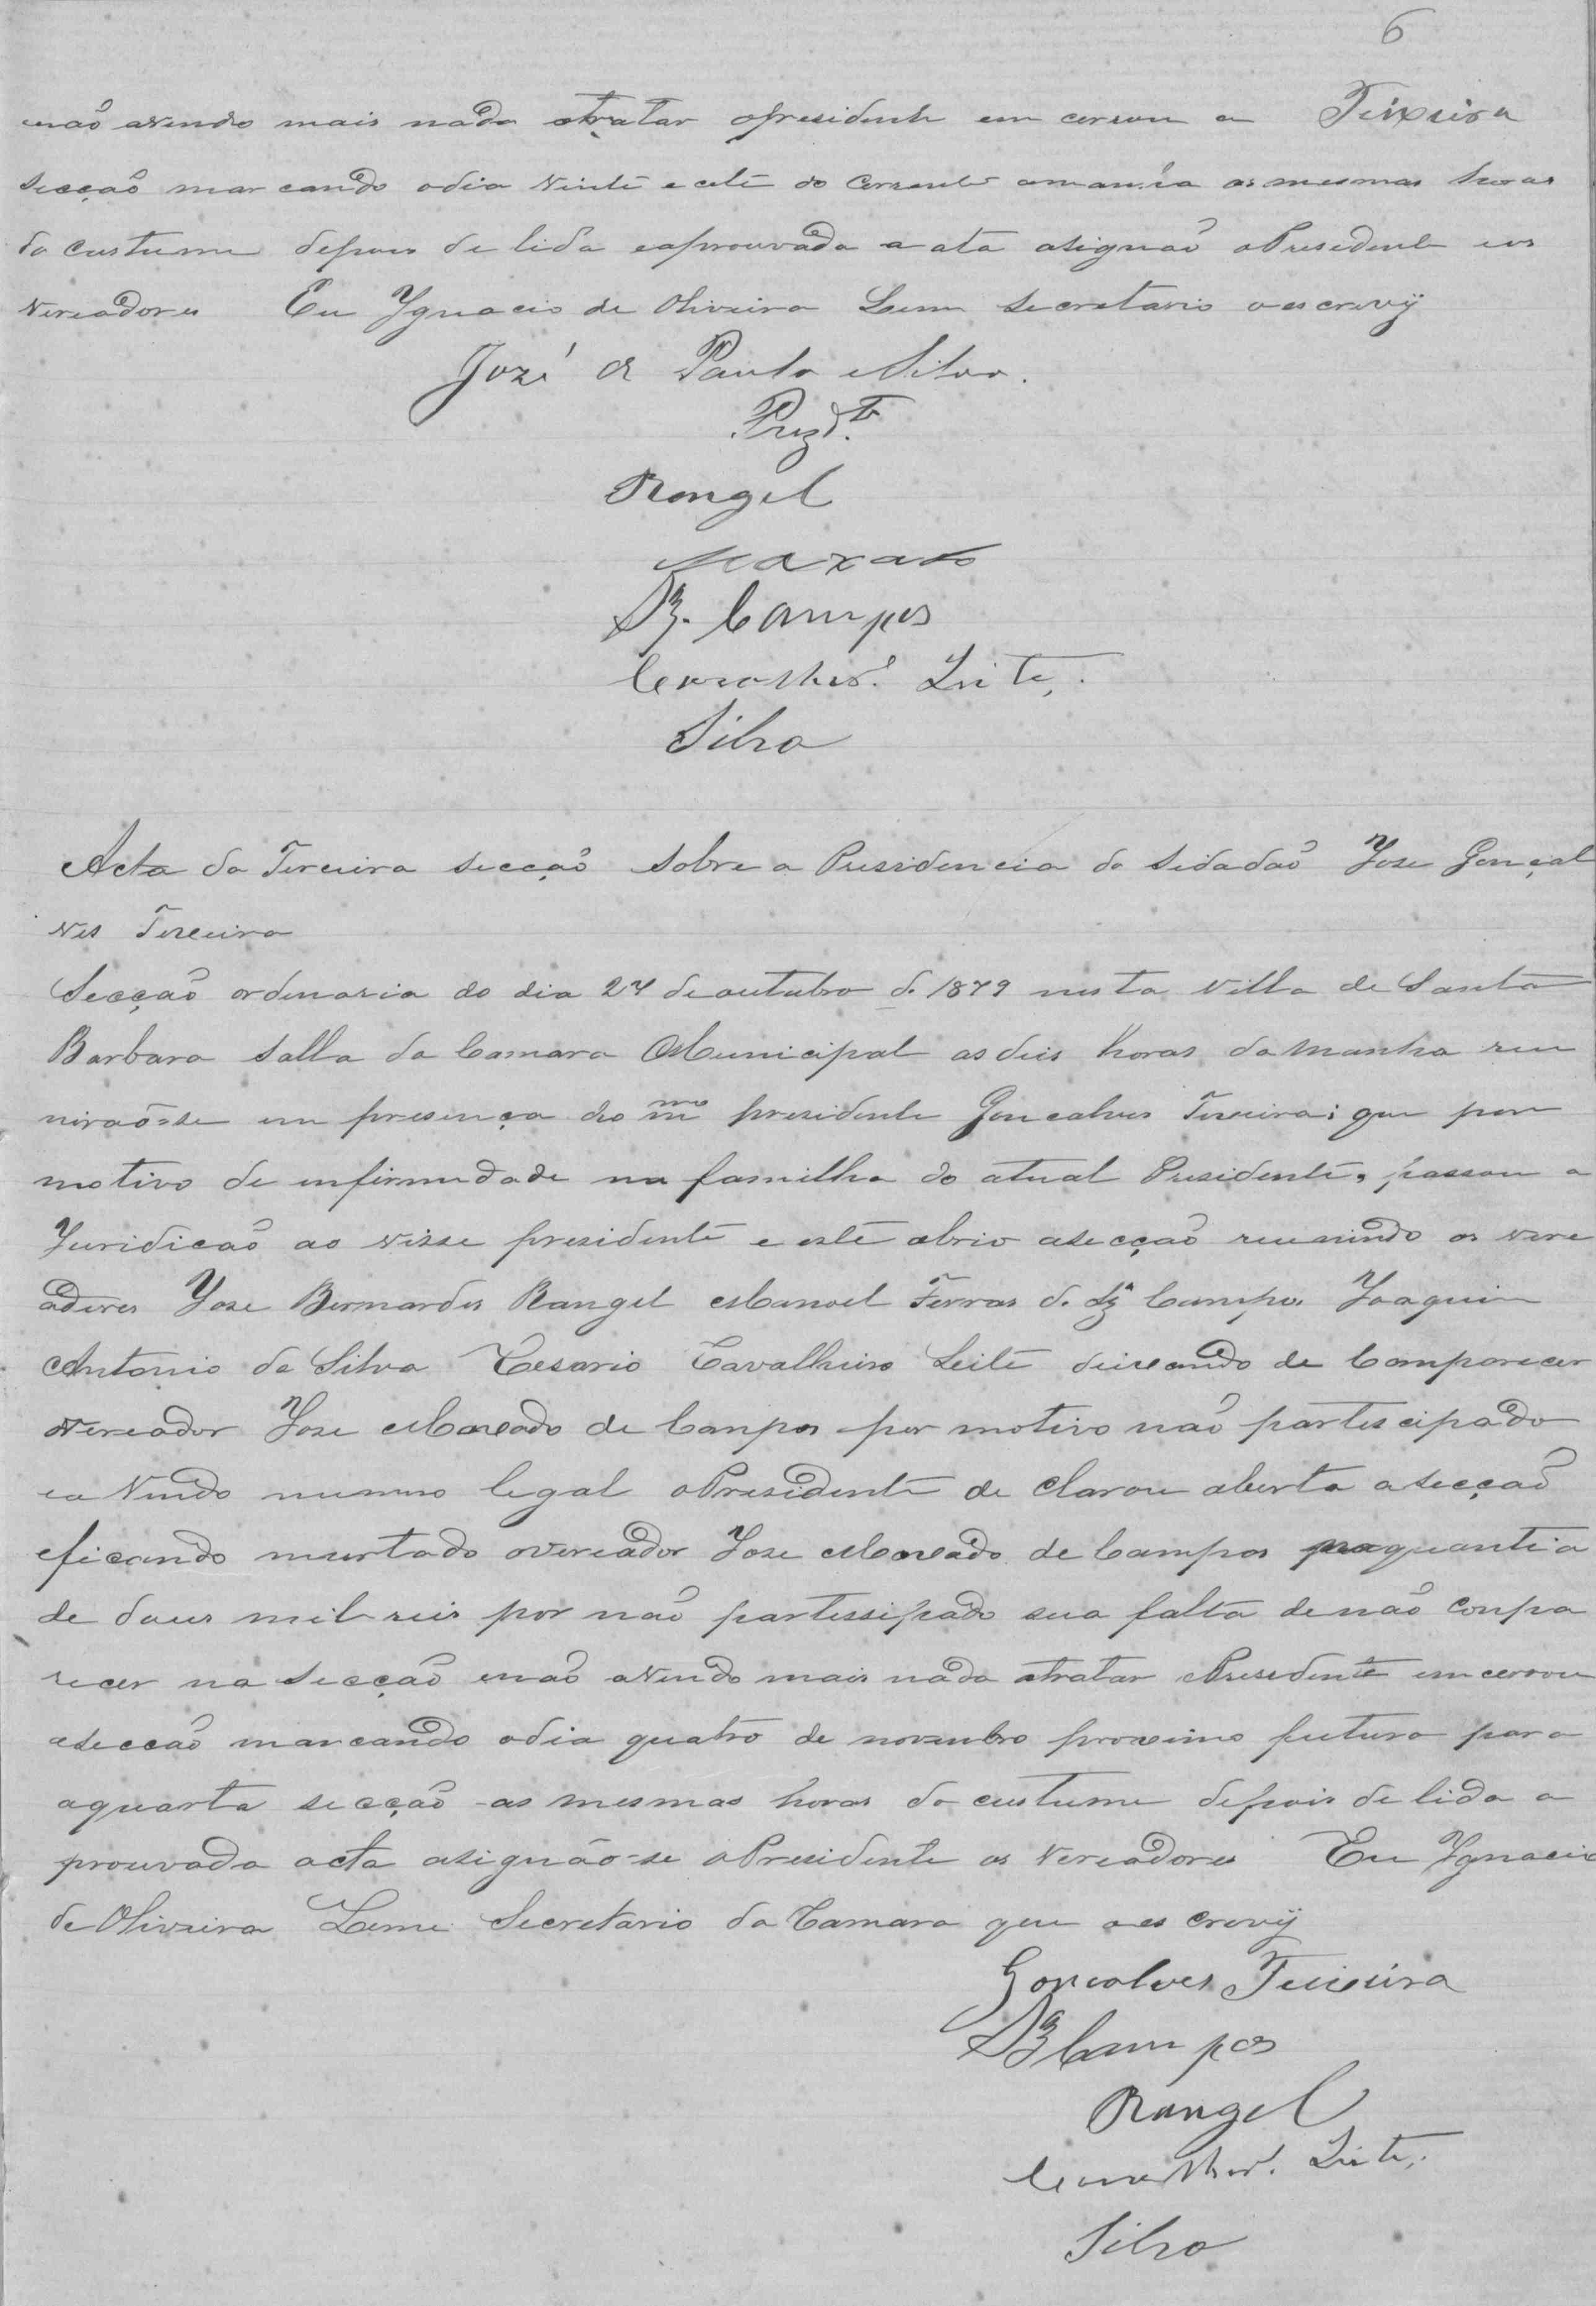 6
enaõ avendo mais nada atratar opresidente em cerrou a Teixeira
secçaõ mar cando odia vinte e cete do Corrente amanhã as mesmas horas
do custume depois de lida eaprouvada a ata asignaõ oPresidente eos
vereadores Eu Ygnacio de Oliveira Leme secretario o es crevÿ
José de Paula e Silva.
Prezd.te
Rangel
Maxado
Fz. Campos
Cavalhro. Leite.
Silva
Acta da Terceira secçaõ sobre a Presidencia do Sidadaõ Jose Gonçal
ves Teixeira
Secçaõ ordenaria do dia 27 de outubro de 1879 nesta villa de Santa
Barbara salla da Camara Municipal as deis horas da manha reu
niraõ-se em presença do mmo presidente Goncalves Teixeira; que por
motivo de enfirmedade na familha do atual Presidente, passou a
Juridicaõ ao visse presidente e este abrio asecçaõ reunindo os vere
adores Jose Bernardes Rangel Manoel Ferras d. Campos Joaquim
Antonio da Silva Cesario Cavalheiro Leite deixando de Comparecer
overeador Jose Maxado de Campos por motivo naõ partescipado
ea vendo numero legal oPresidente de clarou aberta asecçaõ
eficando murtado overeador Jose Maxado de Campos naquantia
de dous mil reis por naõ partessipado sua falta denaõ conpa
recer na secçaõ enaõ avendo mais nada atratar oPresidente emcerrou
asecçaõ marcando odia quatro de novembro proximo futuro para
aquarta secçaõ as mesmas horas do custume depois de lida a
prouvada acta asignão-se oPresidente os Vereadores Eu Ygnacio
de Oliveira Leme Secretario da Camara que o es crevÿ
Goncalves Teixeira
Fz Campos
Rangel
Cavalhro. Leite.
Silva